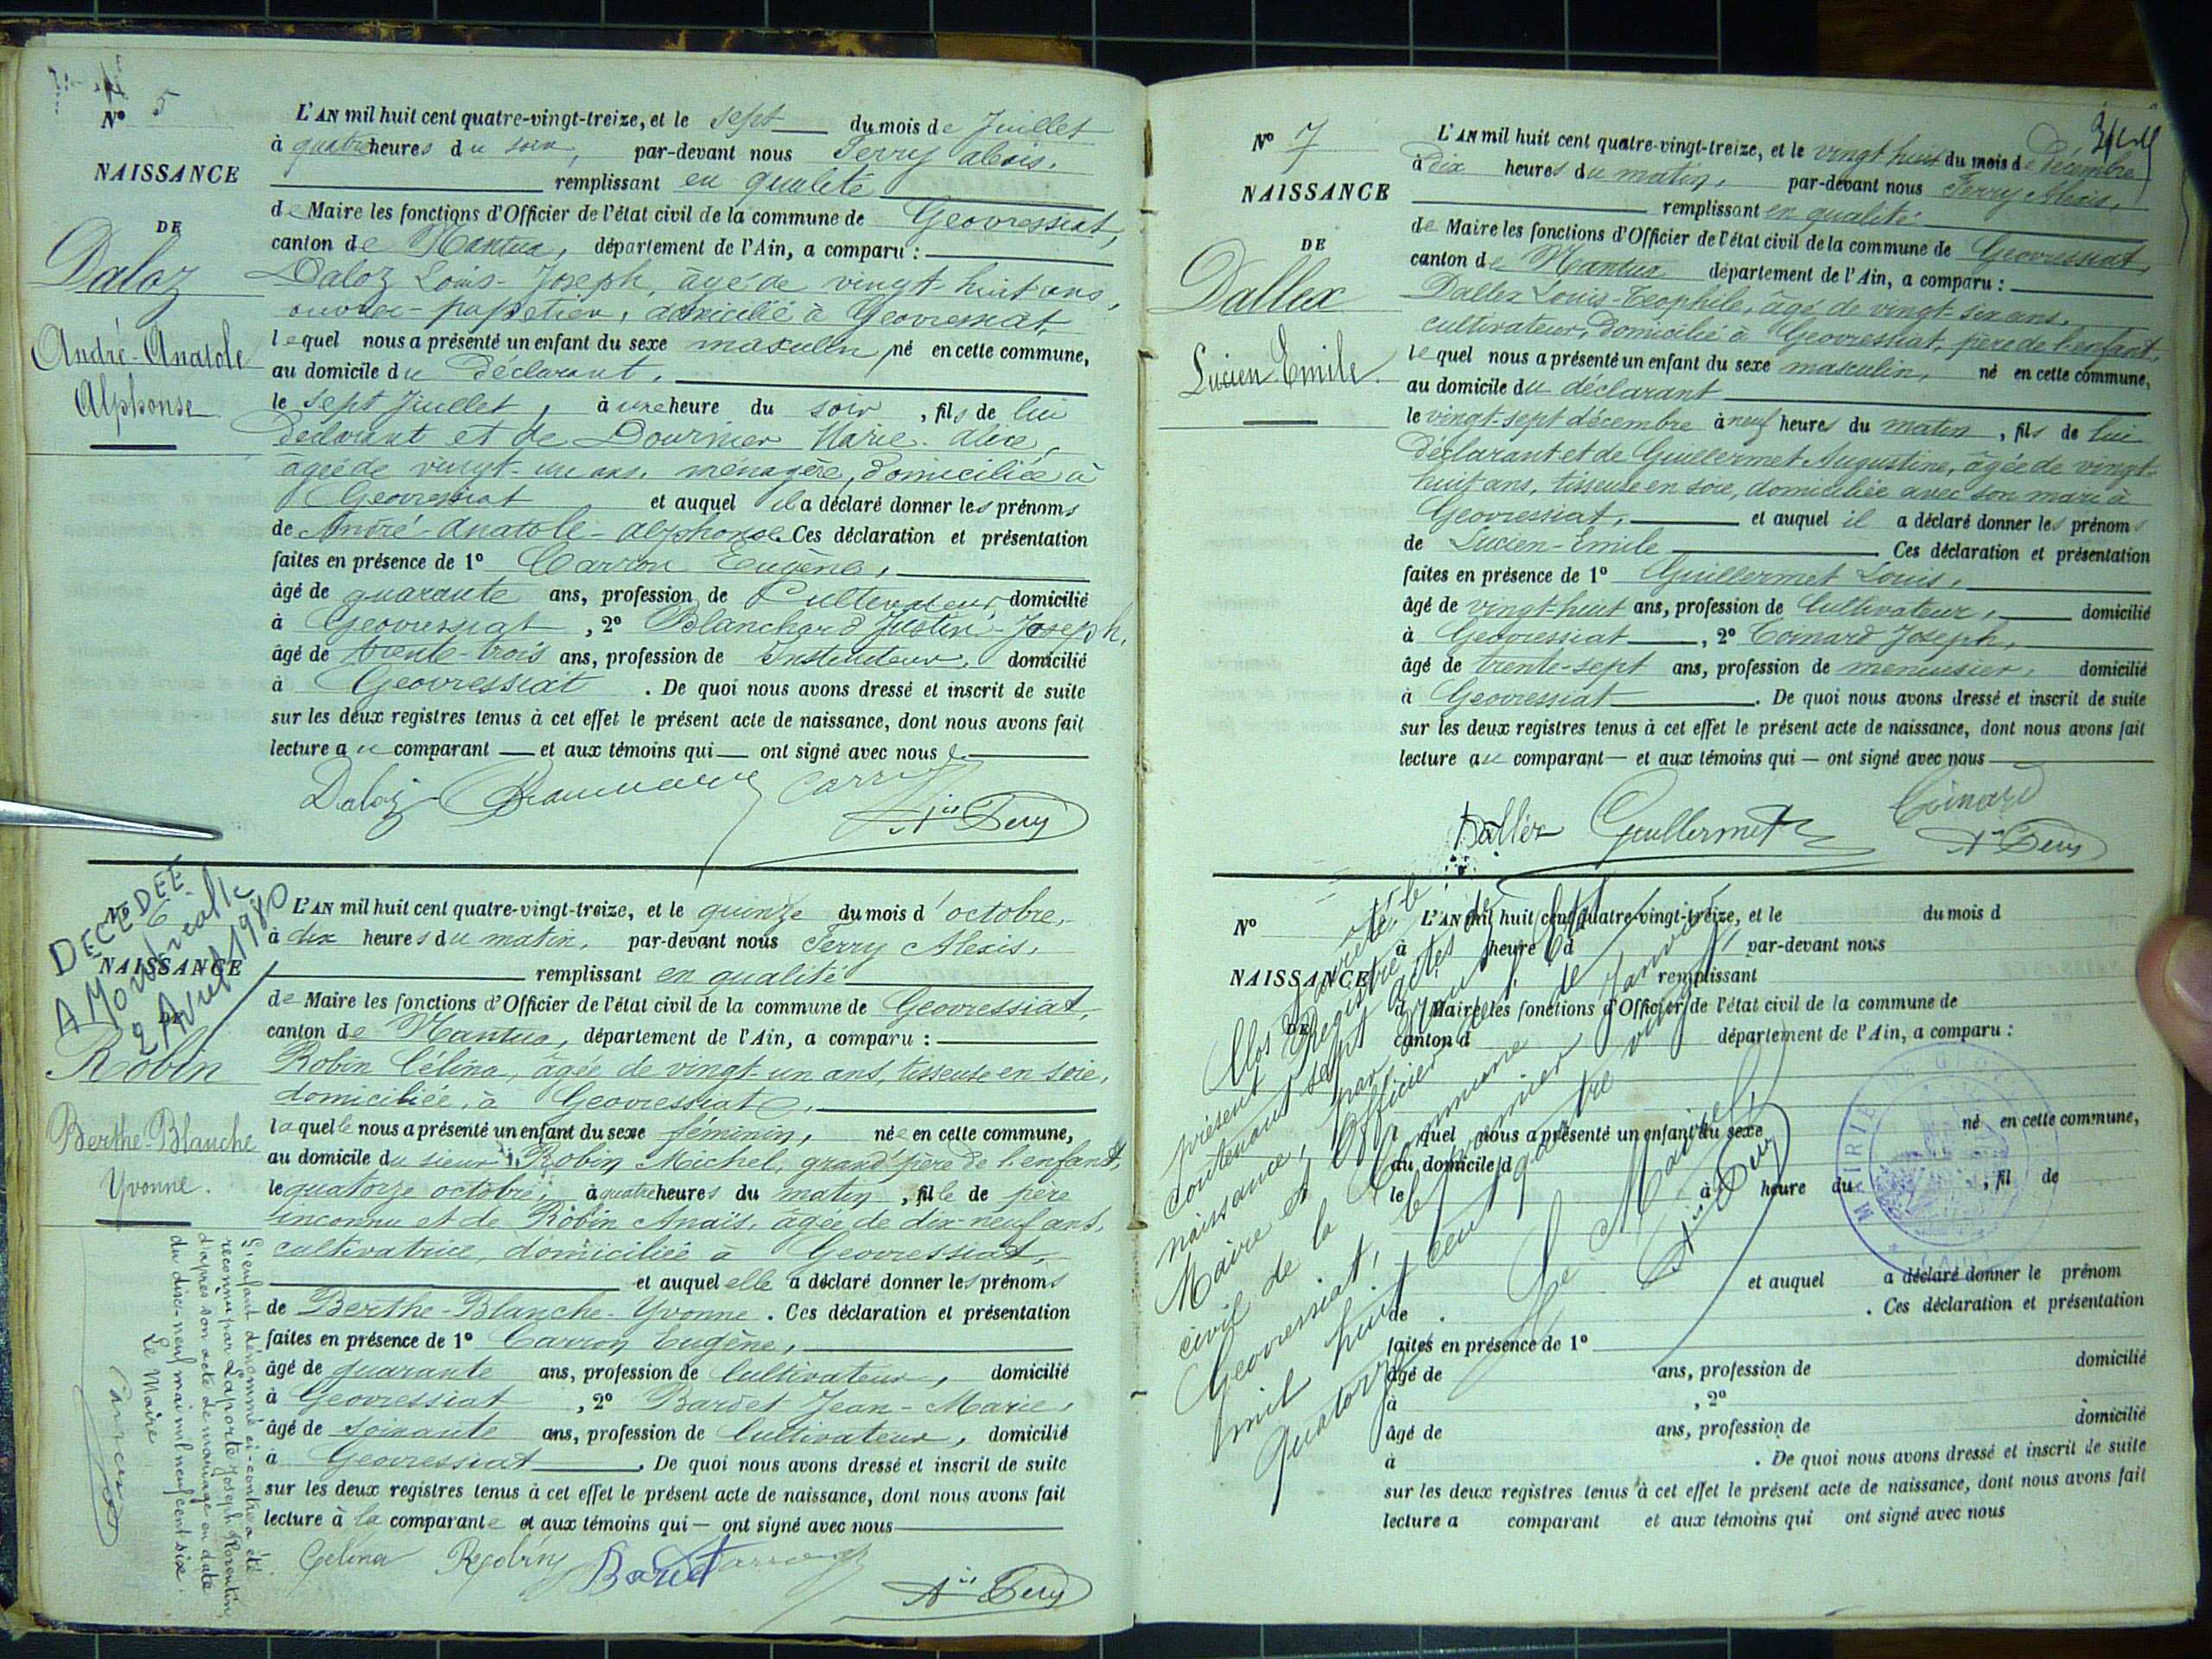 N° 5
NAISSANCE
DE
Daloz
André-Anatole
Alphonse
L'AN mil huit cent quatre-vingt-treize, et le sept du mois de Juillet
à quatre heures du soir, par-devant nous Ferry alexis,
remplissant en qualité
de Maire les fonctions d'Officier de l'état civil de la commune de Geovressiat,
canton de Nantua, département de l'Ain, a comparu :
Daloz Louis-Joseph, âgé de vingt-huit ans,
ouvrier-papetier, domicilié à Geovressiat
lequel nous a présenté un enfant du sexe masculin, né en cette commune,
au domicile du déclarant,
le sept Juillet, à une heure du soir, fils de lui
déclarant et de Dournier Marie-alice,
âgée de vingt-un ans, ménagère, domiciliée à
Geovressiat et auquel il a déclaré donner les prénoms
de André-anatole-alphonse. Ces déclaration et présentation
faites en présence de 1° Carron Eugène,
âgé de quarante ans, profession de Cultivateur, domicilié
à Geovressiat, 2° Blanchard Justin-Joseph,
âgé de trente-trois ans, profession de Instituteur, domicilié
à Geovressiat. De quoi nous avons dressé et inscrit de suite
sur les deux registres tenus à cet effet le présent acte de naissance, dont nous avons fait
lecture au comparant et aux témoins qui ont signé avec nous
Daloz
Axis Ferry
DECEDEE
A Montréal
2 Avril 1980
N° 6
NAISSANCE
DE
Robin
Berthe-Blanche
Yvonne.
L'enfant dénommé ci-contre a été
reconnu par Laporte Joseph Florentin,
d'après son acte de mariage en date
du dix-neuf mai mil neuf cent six.
Le Maire
L'AN mil huit cent quatre-vingt-treize, et le quinze du mois d'octobre,
à dix heures du matin, par-devant nous Ferry Alexis,
remplissant en qualité
de Maire les fonctions d'Officier de l'état civil de la commune de Geovressiat,
canton de Nantua, département de l'Ain, a comparu :
Robin Célina, âgée de vingt-un ans, tisseuse en soie,
domiciliée à Geovressiat,
laquelle nous a présenté un enfant du sexe féminin, née en cette commune,
au domicile du sieur Robin Michel, grand'père de l'enfant,
le quatorze octobre, à quatre heures du matin, fille de père
inconnu et de Robin Anaïs, âgée de dix-neuf ans,
cultivatrice, domiciliée à Geovressiat,
et auquel elle a déclaré donner les prénoms
de Berthe-Blanche-Yvonne. Ces déclaration et présentation
faites en présence de 1° Carron Eugène,
âgé de quarante ans, profession de Cultivateur, domicilié
à Geovressiat, 2° Bardet Jean-Marie,
âgé de soixante ans, profession de Cultivateur, domicilié
à Geovressiat. De quoi nous avons dressé et inscrit de suite
sur les deux registres tenus à cet effet le présent acte de naissance, dont nous avons fait
lecture à la comparante et aux témoins qui ont signé avec nous
Celina Robin Bardet
Axis Ferry
N° 7
NAISSANCE
DE
Dallex
Lucien Emile.
L'AN mil huit cent quatre-vingt-treize, et le vingt huit du mois de décembre
à dix heures du matin, par-devant nous Ferry Alexis,
remplissant en qualité
de Maire les fonctions d'Officier de l'état civil de la commune de Geovressiat,
canton de Nantua département de l'Ain, a comparu :
Dallex Louis-Teophile, âgé de vingt-six ans,
cultivateur, domicilié à Geovressiat, père de l'enfant,
lequel nous a présenté un enfant du sexe masculin, né en cette commune,
au domicile du déclarant
le vingt-sept décembre à neuf heures du matin, fils de lui
déclarant et de Guillermet Augustine, âgée de vingt-
huit ans, tisseuse en soie, domiciliée avec son mari à
Geovressiat, et auquel il a déclaré donner les prénoms
de Lucien-Emile Ces déclaration et présentation
faites en présence de 1° Guillermet Louis,
âgé de vingt-huit ans, profession de Cultivateur, domicilié
à Geovressiat, 2° Coinard Joseph,
âgé de trente-sept ans, profession de menuisier, domicilié
à Geovressiat. De quoi nous avons dressé et inscrit de suite
sur les deux registres tenus à cet effet le présent acte de naissance, dont nous avons fait
lecture au comparant et aux témoins qui ont signé avec nous
Dallex Guillermet Coinard
Axis Ferry
N°
NAISSANCE
DE
L'AN mil huit cent quatre-vingt-treize, et le du mois d
à heure d par-devant nous
remplissant
d Maire les fonctions d'Officier de l'état civil de la commune de
canton d département de l'Ain, a comparu :
l quel nous a présenté un enfant du sexe né en cette commune,
au domicile d
le à heure du , fil de
et auquel a déclaré donner le prénom
de . Ces déclaration et présentation
faites en présence de 1°
âgé de ans, profession de domicilié
à , 2°
âgé de ans, profession de domicilié
à . De quoi nous avons dressé et inscrit de suite
sur les deux registres tenus à cet effet le présent acte de naissance, dont nous avons fait
lecture a comparant et aux témoins qui ont signé avec nous
Clos et arrêté le
présent Registre
contenant sept actes de
naissance, par nous
Maire et Officier de l'état
civil de la Commune de
Geovressiat, le premier Janvier
mil huit cent quatre vingt
quatorze
Le Maire,
Axis Ferry
MAIRIE DE